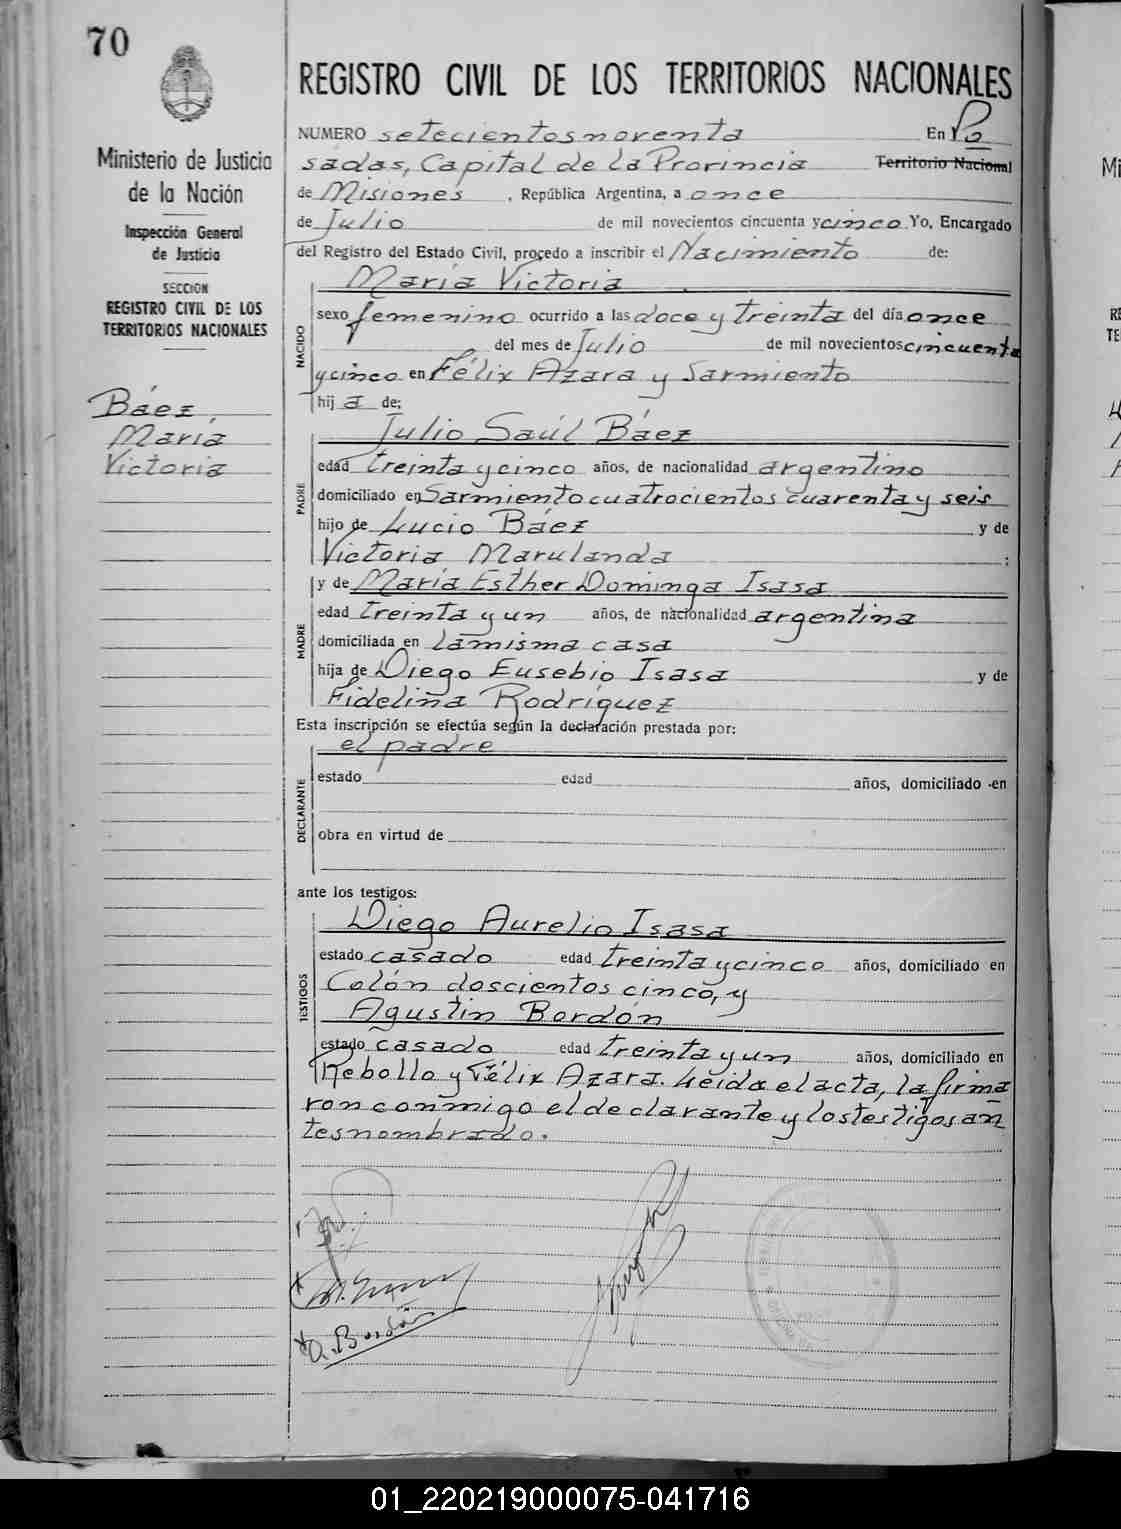 70
Ministerio de Justicia
de la Nación
Inspección General
de Justicia
SECCION
REGISTRO CIVIL DE LOS
TERRITORIOS NACIONALES
Báez,
María
Victoria
REGISTRO CIVIL DE LOS TERRITORIOS NACIONALES
NUMERO setecientos noventa En Po
sadas, Capital de la Provincia Territorio Nacional
de Misiones, República Argentina, a once
de Julio de mil novecientos cincuenta y cinco Yo, Encargado
del Registro del Estado Civil, procedo a inscribir el Nacimiento de:
María Victoria
NACIDO
sexo femenino ocurrido a las doce y treinta del día once
del mes de Julio de mil novecientos cincuenta
y cinco en Félix Azara y Sarmiento
hij a de:
Julio Saúl Báez
PADRE
edad treinta y cinco años, de nacionalidad argentino
domiciliado en Sarmiento cuatrocientos cuarenta y seis
hijo de Lucio Báez y de
Victoria Marulanda ;
y de María Esther Dominga Isasa
MADRE
edad treinta y un años, de nacionalidad argentina
domiciliada en la misma casa
hija de Diego Eusebio Isasa y de
Fidelina Rodríguez
Esta inscripción se efectúa según la declaración prestada por:
el padre
DECLARANTE
estado edad años, domiciliado en
obra en virtud de
ante los testigos:
Diego Aurelio Isasa
TESTIGOS
estado casado edad treinta y cinco años, domiciliado en
Colón doscientos cinco, y
Agustín Bordón
estado casado edad treinta y un años, domiciliado en
Rebollo y Félix Azara. Leida el acta, la firma
ron conmigo el declarante y los testigos an
tes nombrado.
A. Bordón
01_220219000075-041716